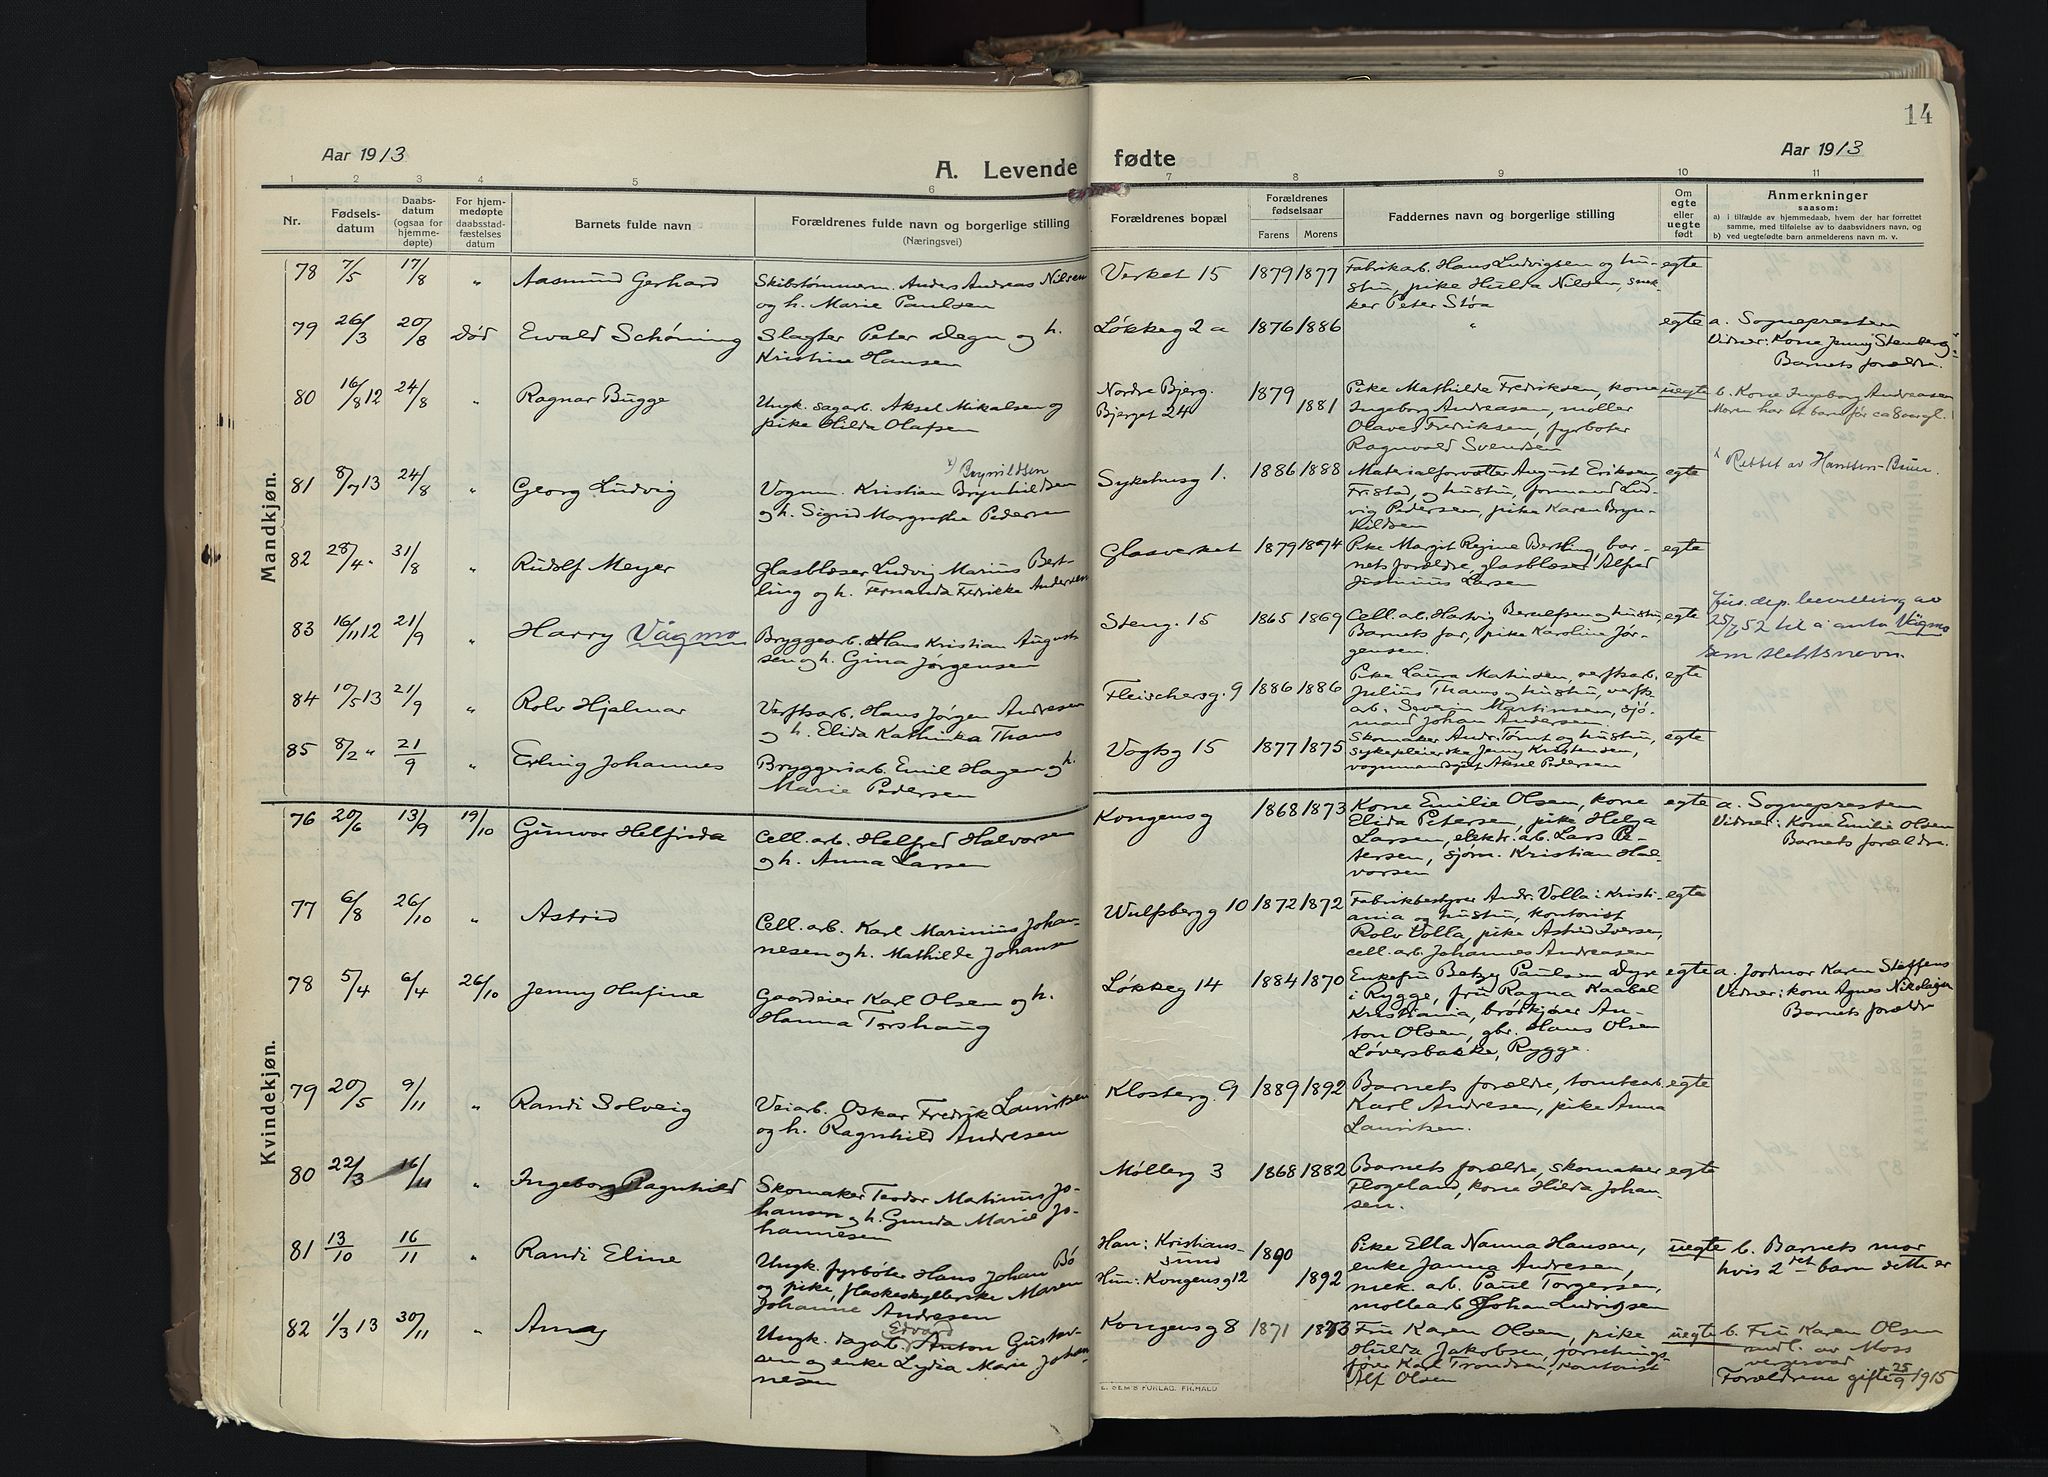 14
Aar 1913
A. Levende fødte
Aar 1913
1 2 3 4 5 6 7 8 9 10 11
Nr.
Fødsels-
datum
Daabs-
datum
(ogsaa for
hjemme-
døpte)
For hjem-
medøpte
daabsstad-
fæstelses
datum
Barnets fulde navn
Forældrenes fulde navn og borgerlige stilling
(Næringsvei)
Forældrenes bopæl
Forældrenes
fødselsaar
Farens Morens
Faddernes navn og borgerlige stilling
Om
egte
eller
uegte
født
Anmerkninger
saasom:
a) i tilfælde av hjemmedaab, hvem der har forrettet
samme, med tilføielse av to daabsvidners navn, og
b) ved uegtefødte barn anmelderens navn m. v.
Mandkjøn.
78 7/5 17/8 " Aasmund Gerhard
Skibstømmerm. Anders Andreas Nilsen
og h. Marie Paulsen
Verket 15 1879 1877
Fabrikarb. Hans Ludvigsen og hu-
stru, pike Hulda Nilsen, snek-
ker Peter Støa
egte
79 26/3 20/8 Død Ewald Schöning
Slagter Peter Degn og h.
Kristine Hansen
Løkkeg 2 a 1876 1886
"
egte
a. Sognepresten
Vidner: Kone Jenny Stenberg
Barnets forældre.
80 16/8 12 24/8 " Ragnar Bugge
Ungk. sagarb. Aksel Mikalsen og
pike Hilda Olafsen
Nordre Bjerg.
Bjerget 24
1879
1881
Pike Mathilde Fredriksen, kone
Ingeborg Andreasen, møller
Olaves Fredriksen, fyrbøter
Ragnvald Svendsen
uegte
b. Kone Ingeborg Andreasen
Moren har et barn før ca 8 aar gl.
81 8/7 13 24/8 " Georg Ludvig
x) Brynildsen
Vognm. Kristian Brynhildsen
og h. Sigrid Margrethe Pedersen
Sykehusg 1. 1886 1888
Materialforvalter August Eriksen,
Fristad, og hustru, formand Lud-
vig Pedersen, pike Karen Bryn-
hildsen
egte
x Rettet av
82 28/4 " 31/8 Rudolf Meyer
Glasblæser Ludvig Marius Bert-
ling og h. Fernanda Fredrikke Andersen
Glasverket 1879 1874
Pike Margit Regine Bertling, bar-
nets forældre, glasblæser Alfred
Justinius Larsen
egte
83 16/11 12 21/9 " Harry Vågmo
Bryggearb. Hans Kristian August-
sen og h. Gina Jørgensen
Steng. 15 1865 1869
Cell. arb. Hartvig Berulfsen og hustru,
Barnets far, pike Karoline Jør-
gensen.
egte
Jus. dep. bevilling av
25/7 52 til å anta Vågmo
som slektsnavn.
84 10/5 13 21/9 " Rolv Hjalmar
Verftsarb. Hans Jørgen Andresen
og h. Elida Kathinka Thams
Fleischersg. 9 1886 1886
Pike Laura Mathisen, verftsarb.
Julius Thams og hustru, verfts
arb. Severin Martinsen, sjø-
mand Johan Andersen.
egte
85 8/2 " 21/9 " Erling Johannes
Bryggeriarb. Emil Hagen og h.
Marie Pedersen
Vogtsg 15 1877 1875
Skomaker Andr. Tømt og hustru,
sykepleierske Jenny Kristensen,
vognmandsgut Aksel Pedersen
egte
Kvindekjøn.
76 20/6 13/9 19/10 Gunvor Helfrida
Cell. arb. Helfred Halvorsen
og h. Anna Larsen
Kongensg 1868 1873
Kone Emilie Olsen, kone
Elida Petersen, pike Helga
Larsen, elektr. arb. Lars Pe-
tersen, sjøm. Kristian Hal-
vorsen
egte
a. Sognepresten
Vidner: Kone Emilie Olsen
Barnets forældre.
77 6/8 26/10 " Astrid
Cell. arb. Karl Marinius Johan-
nesen og h. Mathilde Johansen
Wulfsbergg 10 1872 1872
Fabrikbestyrer Andr. Volla i Kristi-
ania og hustru, kontorist
Rolv Volla, pike Astrid Iversen,
cell. arb. Johannes Andreasen
egte
78 5/4 6/4 26/10 Jenny Olufine
Gaardeier Karl Olsen og h.
Hanna Torshaug
Løkkeg 14 1884 1870
Enkefru Betzy Paulsen Dyre
i Rygge, fru Ragna Kaabel
Kristiania, brødkjører An-
ton Olsen, gbr. Hans Olsen
Løversbakke, Rygge.
egte
a. Jordmor Karen Steffens
Vidner: kone Agnes Nikolaisen
Barnets forældre
79 20/5 9/11 " Randi Solveig
Veiarb. Oskar Fredrik Lauritsen
og h. Ragnhild Andresen
Klosterg. 9 1889 1892
Barnets forældre, tomtearb.
Karl Andresen, pike Anna
Lauritsen.
egte
80 22/3 16/11 " Ingeborg Ragnhild
Skomaker Teodor Matinius Jo-
hansen og h. Gunda Marie Jo-
hannesen
Møllerg 3 1868 1882
Barnets forældre, skomaker
Flogeland, kone Hilda Johan-
sen.
egte
81 13/10 16/11 " Randi Eline
Ungk. fyrbøter Hans Johan Bö
og pike, flaskeskyllerske Maren
Johanne Andresen
Han: Kristian-
sund
Hun: Kongensg 12
1890
1892
Pike Ella Nanna Hansen,
enke Janna Andresen,
mek. arb. Paul Torgersen,
møllearb Johan Ludvigsen
uegte
b. Barnets mor
hvis 2det barn dette er
82 1/3 13 30/11 " Anny
Edvard
Ungk. dagarb. Anton Gustav-
sen og enke Lydia Marie Johan-
nesen
Kongensg 8 1871 1873
Fru Karen Olsen, pike
Hulda Jakobsen, forretnings-
fører Karl Trondsen, kontorist
Alf Olsen
uegte
b. Fru Karen Olsen
medl. av Moss
vergeraad
Forældrene gift 25/9 1915
E. SEM'S FORLAG. FR.HALD